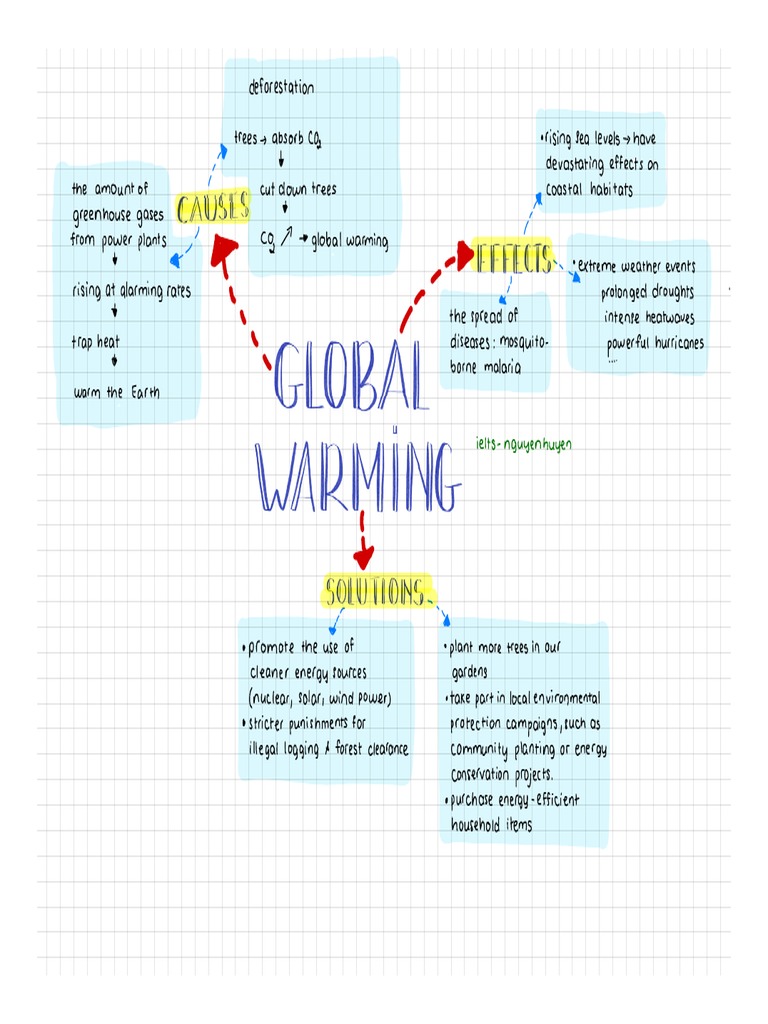 GLOBAL
WARMING
ielts-nguyenhuyen
CAUSES
deforestation
trees → absorb CO₂
↓
cut down trees
↓
CO₂ ↗ → global warming
the amount of
greenhouse gases
from power plants
↓
rising at alarming rates
↓
trap heat
↓
warm the Earth
EFFECTS
•rising sea levels → have
devastating effects on
coastal habitats
•extreme weather events
prolonged droughts
intense heatwaves
powerful hurricanes
....
the spread of
diseases: mosquito-
borne malaria
SOLUTIONS
•promote the use of
cleaner energy sources
(nuclear, solar, wind power)
•stricter punishments for
illegal logging & forest clearance
•plant more trees in our
gardens
•take part in local environmental
protection campaigns, such as
community planting or energy
conservation projects.
•purchase energy-efficient
household items